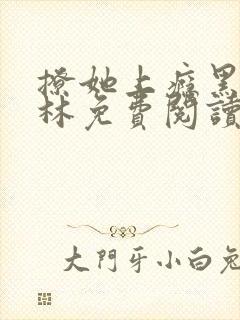 撩她上癮黑
林免費閱讀
大門牙小白兔